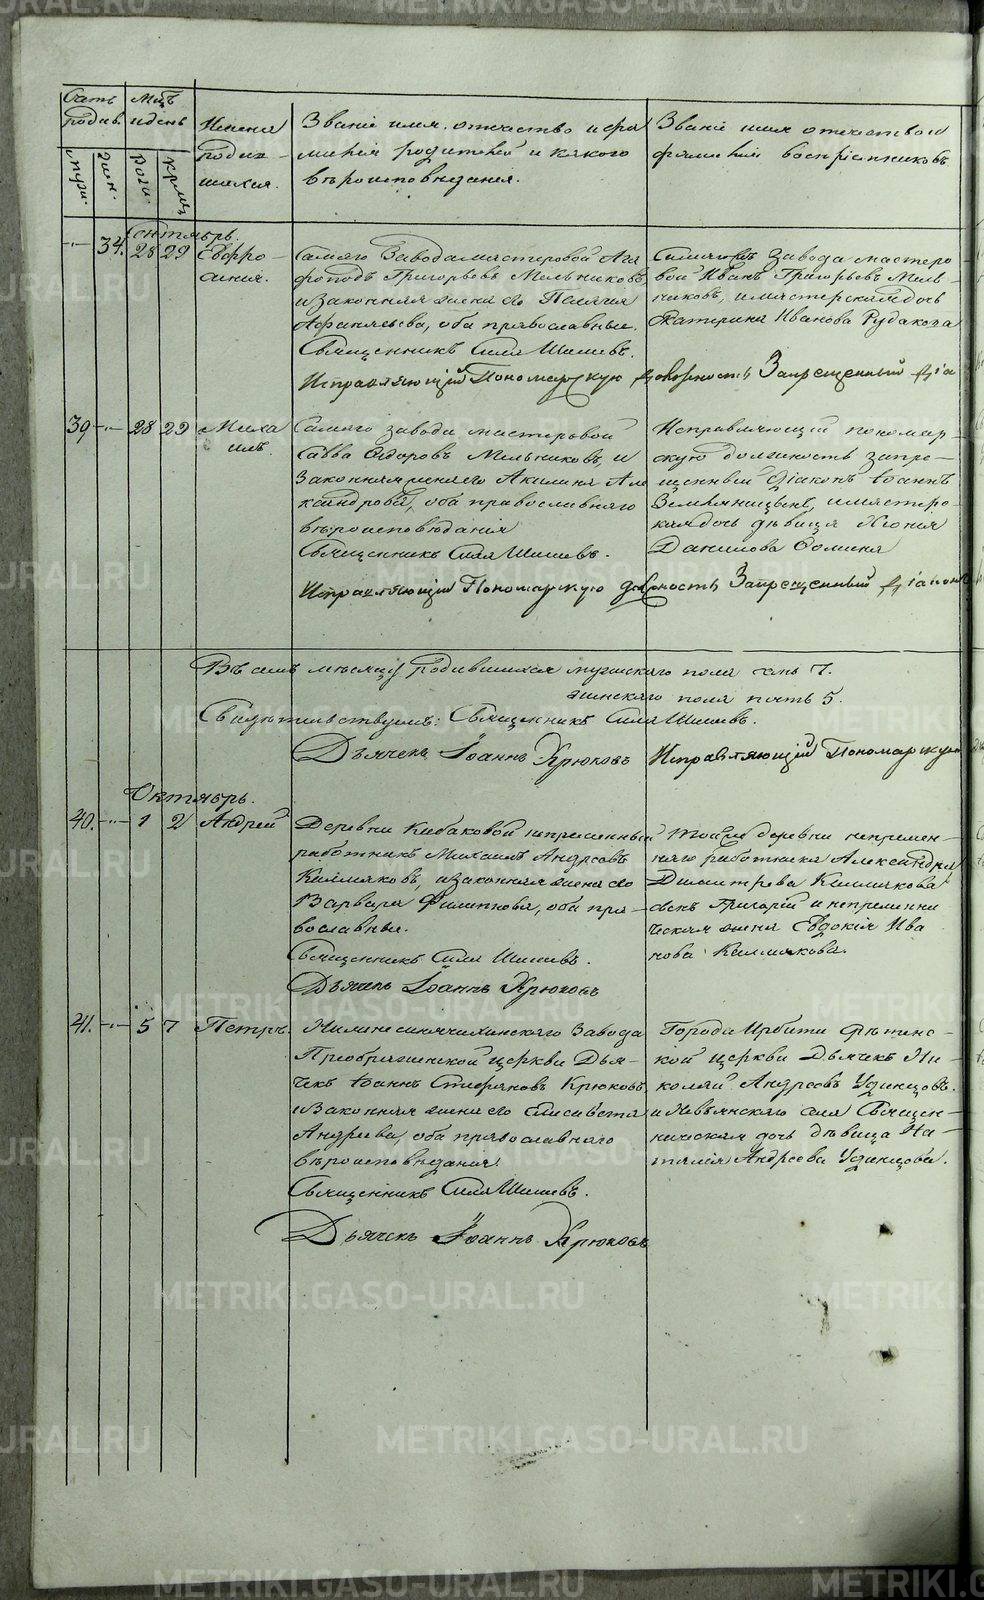 METRIKI.GASO-URAL.RU
Счетъ родив.
Мцъ и день
Имена родив-
шихся.
Званіе имя, отчество и фа-
милія родителей и какого
вѣроисповѣданія.
Званіе имя отчество и
фамилія воспріемниковъ.
муж. жен. рож. крещ.
Сентябрь.
34. 28 29 Евфро-
синія.
Самаго завода мастеровой Ага
фоподъ Григорьевъ Мельниковъ,
и законная жена его Пелагія
Афанасьева, оба православные.
Священникъ Сила Шишевъ.
Исправляющій Пономарскую должность Запрещенный діа
завода мастеро
вой Иванъ Григорьевъ Мель-
никовъ, и мастерская дочь
Екатерина Иванова Рудакова
39 28 29 Миха
илъ.
Самаго завода мастеровой
Савва Ѳедоровъ Мельниковъ, и
законная жена его Акилина Але
ксандрова, оба православнаго
вѣроисповѣданія
Священникъ Сила Шишевъ.
Исправляющій Пономарскую должность Запрещенный діаконъ
Исправляющій пономар-
скую должность запре-
щенный діаконъ Іоаннъ
Земляницынъ, и мастеро-
ва дочь дѣвица
Данилова Ѳомина
Въ семъ мѣсяцѣ родившихся мужскаго пола семь 7.
женскаго пола пять 5.
Свидѣтельствуемъ: Священникъ Сила Шишевъ.
Дьячекъ Іоаннъ Крюковъ Исправляющій Пономарскую
Октябрь.
40. 1 2 Андрей
Деревни Кабаковой непременный
работникъ Михаилъ Андреевъ
и законная жена его
Варвара Филипова, оба пра-
вославные.
Священникъ Сила Шишевъ.
Дьячекъ Іоаннъ Крюковъ
Той же деревни непремен-
наго работника Александра
Димитрева
сынъ Григорій и непременни
ческая жена Евдокія Ива
нова
41. 5 7 Петръ.
Нижнесинячихинскаго завода
Преображенской церкви Дья-
чекъ Іоаннъ Стефановъ Крюковъ
и законная жена его Елисавета
Андреева, оба православнаго
вѣроисповѣданія.
Священникъ Сила Шишевъ.
Дьячекъ Іоаннъ Крюковъ
Города Ирбити
ской церкви Дьячекъ Ни-
колай Андреевъ Удинцовъ.
и Невьянскаго села Священ-
ническая дочь дѣвица На-
талія Андреева Удинцова.